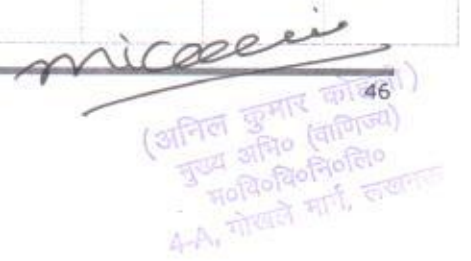 46
(अनिल कुमार
मुख्य अभि० (वाणिज्य)
म०वि०वि०नि०लि०
4-A, गोखले मार्ग, लखनऊ